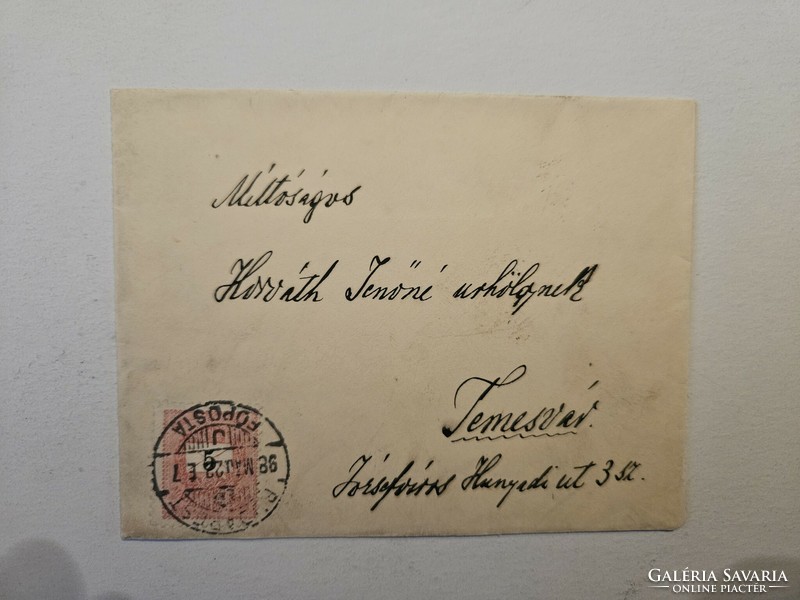 Méltóságos
Horváth Jenőné urhölgynek
Temesvár.
Józsefváros Hunyadi ut 3 sz.
FŐPOSTA
5
98 MÁJ 23 E 7
BUDAPEST
GALÉRIA SAVARIA
ONLINE PIACTÉR